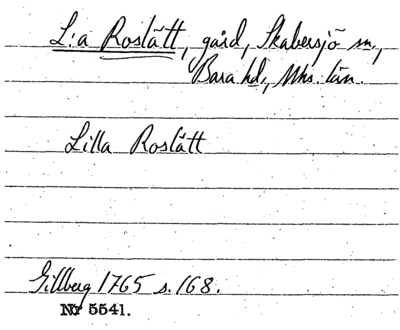 L:a Roslätt, gård, Skabersjö sn,
Bara hd, Mhs. län.
Lilla Roslätt
Gillberg 1765 s. 168.
Nr 5541.